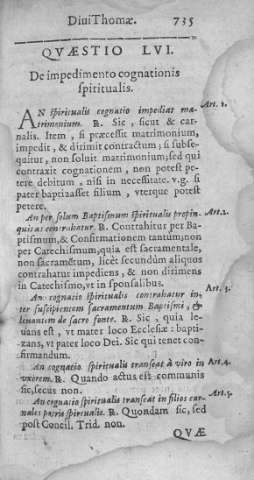 Diui Thomæ. 735
QVÆSTIO LVI.
De impedimento cognationis
spiritualis.
AN spiritualis cognatio impediat ma- Art. 1.
trimonium. R. Sic, sicut & car-
nalis. Item, si præcessit matrimonium,
impedit, & dirimit contractum; si subse-
quitur, non soluit matrimonium; sed qui
contraxit cognationem, non potest pe-
tere debitum, nisi in necessitate. v.g. si
pater baptizasset filium, vterque potest
petere.
An per solum Baptismum spiritualis propin- Art. 2.
quitas contrahatur. R. Contrahitur per Ba-
ptismum, & Confirmationem tantum, non
per Catechismum, quia est sacramentale,
non sacramẽtum, licèt secundùm aliquos
contrahatur impediens, & non dirimens
in Catechismo, vt in sponsalibus.
An cognatio spiritualis contrahatur in- Art. 3.
ter suscipientem sacramentum Baptismi, &
leuantem de sacro fonte. R. Sic, quia le-
uans est, vt mater loco Ecclesiæ: bapti-
zans, vt pater loco Dei. Sic qui tenet con-
firmandum.
An cognatio spiritualis transeat à viro in Art. 4.
vxorem. R. Quando actus est communis
sic, secus non.
An cognatio spiritualis transeat in filios car- Art. 5.
nales patris spiritualis. R. Quondam sic, sed
post Concil. Trid. non.
QVÆ